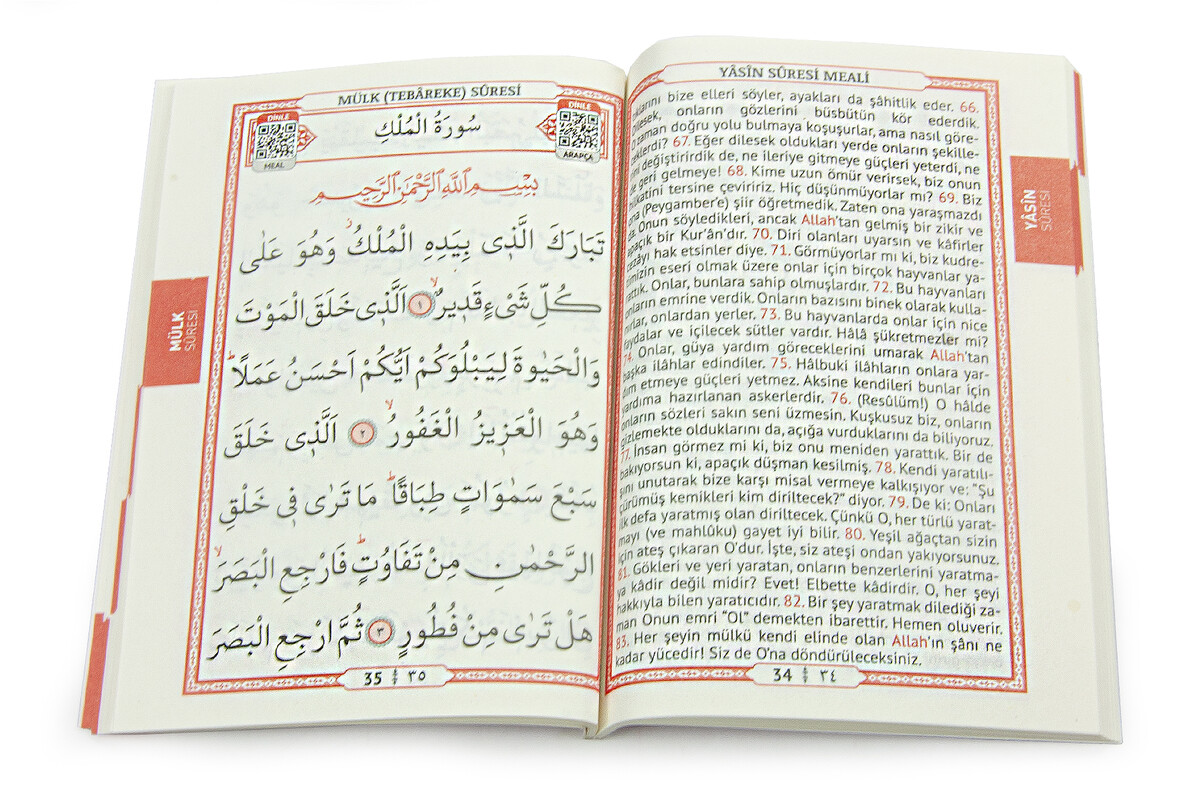 YÂSÎN SÛRESİ MEALİ
bize elleri söyler, ayakları da şâhitlik eder. 66.
dilesek, onların gözlerini büsbütün kör ederdik.
zaman doğru yolu bulmaya koşuşurlar, ama nasıl göre-
67. Eğer dilesek oldukları yerde onların şekille-
değiştirirdik de, ne ileriye gitmeye güçleri yeterdi, ne
geri gelmeye! 68. Kime uzun ömür verirsek, biz onun
tersine çeviririz. Hiç düşünmüyorlar mı? 69. Biz
ona (Peygamber'e) şiir öğretmedik. Zaten ona yaraşmazdı
da. Onun söyledikleri, ancak Allah'tan gelmiş bir zikir ve
apaçık bir Kur'ân'dır. 70. Diri olanları uyarsın ve kâfirler
cezâyı hak etsinler diye. 71. Görmüyorlar mı ki, biz kudre-
timizin eseri olmak üzere onlar için birçok hayvanlar ya-
rattık. Onlar, bunlara sahip olmuşlardır. 72. Bu hayvanları
onların emrine verdik. Onların bazısını binek olarak kulla-
nırlar, onlardan yerler. 73. Bu hayvanlarda onlar için nice
faydalar ve içilecek sütler vardır. Hâlâ şükretmezler mi?
74. Onlar, güya yardım göreceklerini umarak Allah'tan
başka ilâhlar edindiler. 75. Hâlbuki ilâhların onlara yar-
dım etmeye güçleri yetmez. Aksine kendileri bunlar için
yardıma hazırlanan askerlerdir. 76. (Resûlüm!) O hâlde
onların sözleri sakın seni üzmesin. Kuşkusuz biz, onların
gizlemekte olduklarını da, açığa vurduklarını da biliyoruz.
77. İnsan görmez mi ki, biz onu meniden yarattık. Bir de
bakıyorsun ki, apaçık düşman kesilmiş. 78. Kendi yaratılı-
şını unutarak bize karşı misal vermeye kalkışıyor ve: "Şu
çürümüş kemikleri kim diriltecek?" diyor. 79. De ki: Onları
ilk defa yaratmış olan diriltecek. Çünkü O, her türlü yarat-
mayı (ve mahlûku) gayet iyi bilir. 80. Yeşil ağaçtan sizin
için ateş çıkaran O'dur. İşte, siz ateşi ondan yakıyorsunuz.
81. Gökleri ve yeri yaratan, onların benzerlerini yaratma-
ya kâdir değil midir? Evet! Elbette kâdirdir. O, her şeyi
hakkıyla bilen yaratıcıdır. 82. Bir şey yaratmak dilediği za-
man Onun emri "Ol" demekten ibarettir. Hemen oluverir.
83. Her şeyin mülkü kendi elinde olan Allah'ın şânı ne
kadar yücedir! Siz de O'na döndürüleceksiniz.
34 ٣٤
YÂSÎN
SÛRESİ
MÜLK (TEBÂREKE) SÛRESİ
DİNLE
MEAL
سُورَةُ الْمُلْكِ
DİNLE
ARAPÇA
بِسْمِ اللّٰهِ الرَّحْمٰنِ الرَّحِيمِ
تَبَارَكَ الَّذ۪ى بِيَدِهِ الْمُلْكُۘ وَهُوَ عَلٰى
كُلِّ شَىْءٍ قَد۪يرٌۙ ﴿١﴾ اَلَّذ۪ى خَلَقَ الْمَوْتَ
وَالْحَيٰوةَ لِيَبْلُوَكُمْ اَيُّكُمْ اَحْسَنُ عَمَلًاۜ
وَهُوَ الْعَز۪يزُ الْغَفُورُۙ ﴿٢﴾ اَلَّذ۪ى خَلَقَ
سَبْعَ سَمٰوَاتٍ طِبَاقًاۜ مَا تَرٰى ف۪ى خَلْقِ
الرَّحْمٰنِ مِنْ تَفَاوُتٍۜ فَارْجِعِ الْبَصَرَۙ
هَلْ تَرٰى مِنْ فُطُورٍ ﴿٣﴾ ثُمَّ ارْجِعِ الْبَصَرَ
35 ٣٥
MÜLK
SÛRESİ